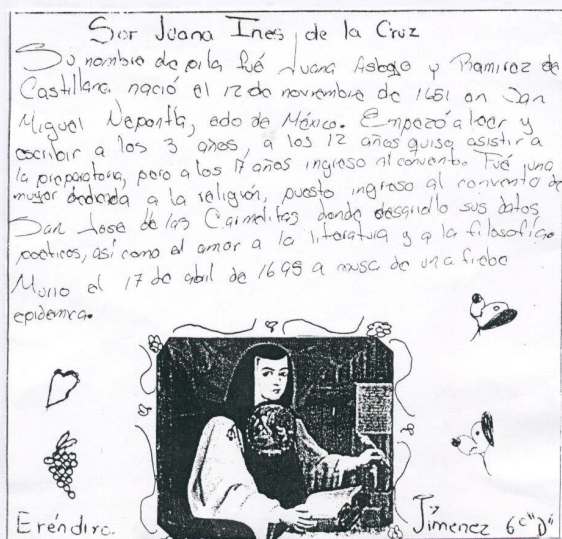 Sor Juana Ines, de la Cruz
Su nombre de pila fué Juana Asbaje y Ramirez de
Castillana nació el 12 de noviembre de 1651 en San
Miguel Nepantla, edo de México. Empezó a leer y
escribir a los 3 años, a los 12 años quiso asistir a
la preparatoria, pero a los 17 años ingreso al convento. Fué una
mujer dedicada a la religión, puesto ingreso al convento de
San José de las Carmelitas donde desarrollo sus datos
poeticos, así como el amor a la literatura y a la filosofía
Murio el 17 de abril de 1695 a causa de una fiebe
epidemica.
Eréndira. Jimenez 6° "D"